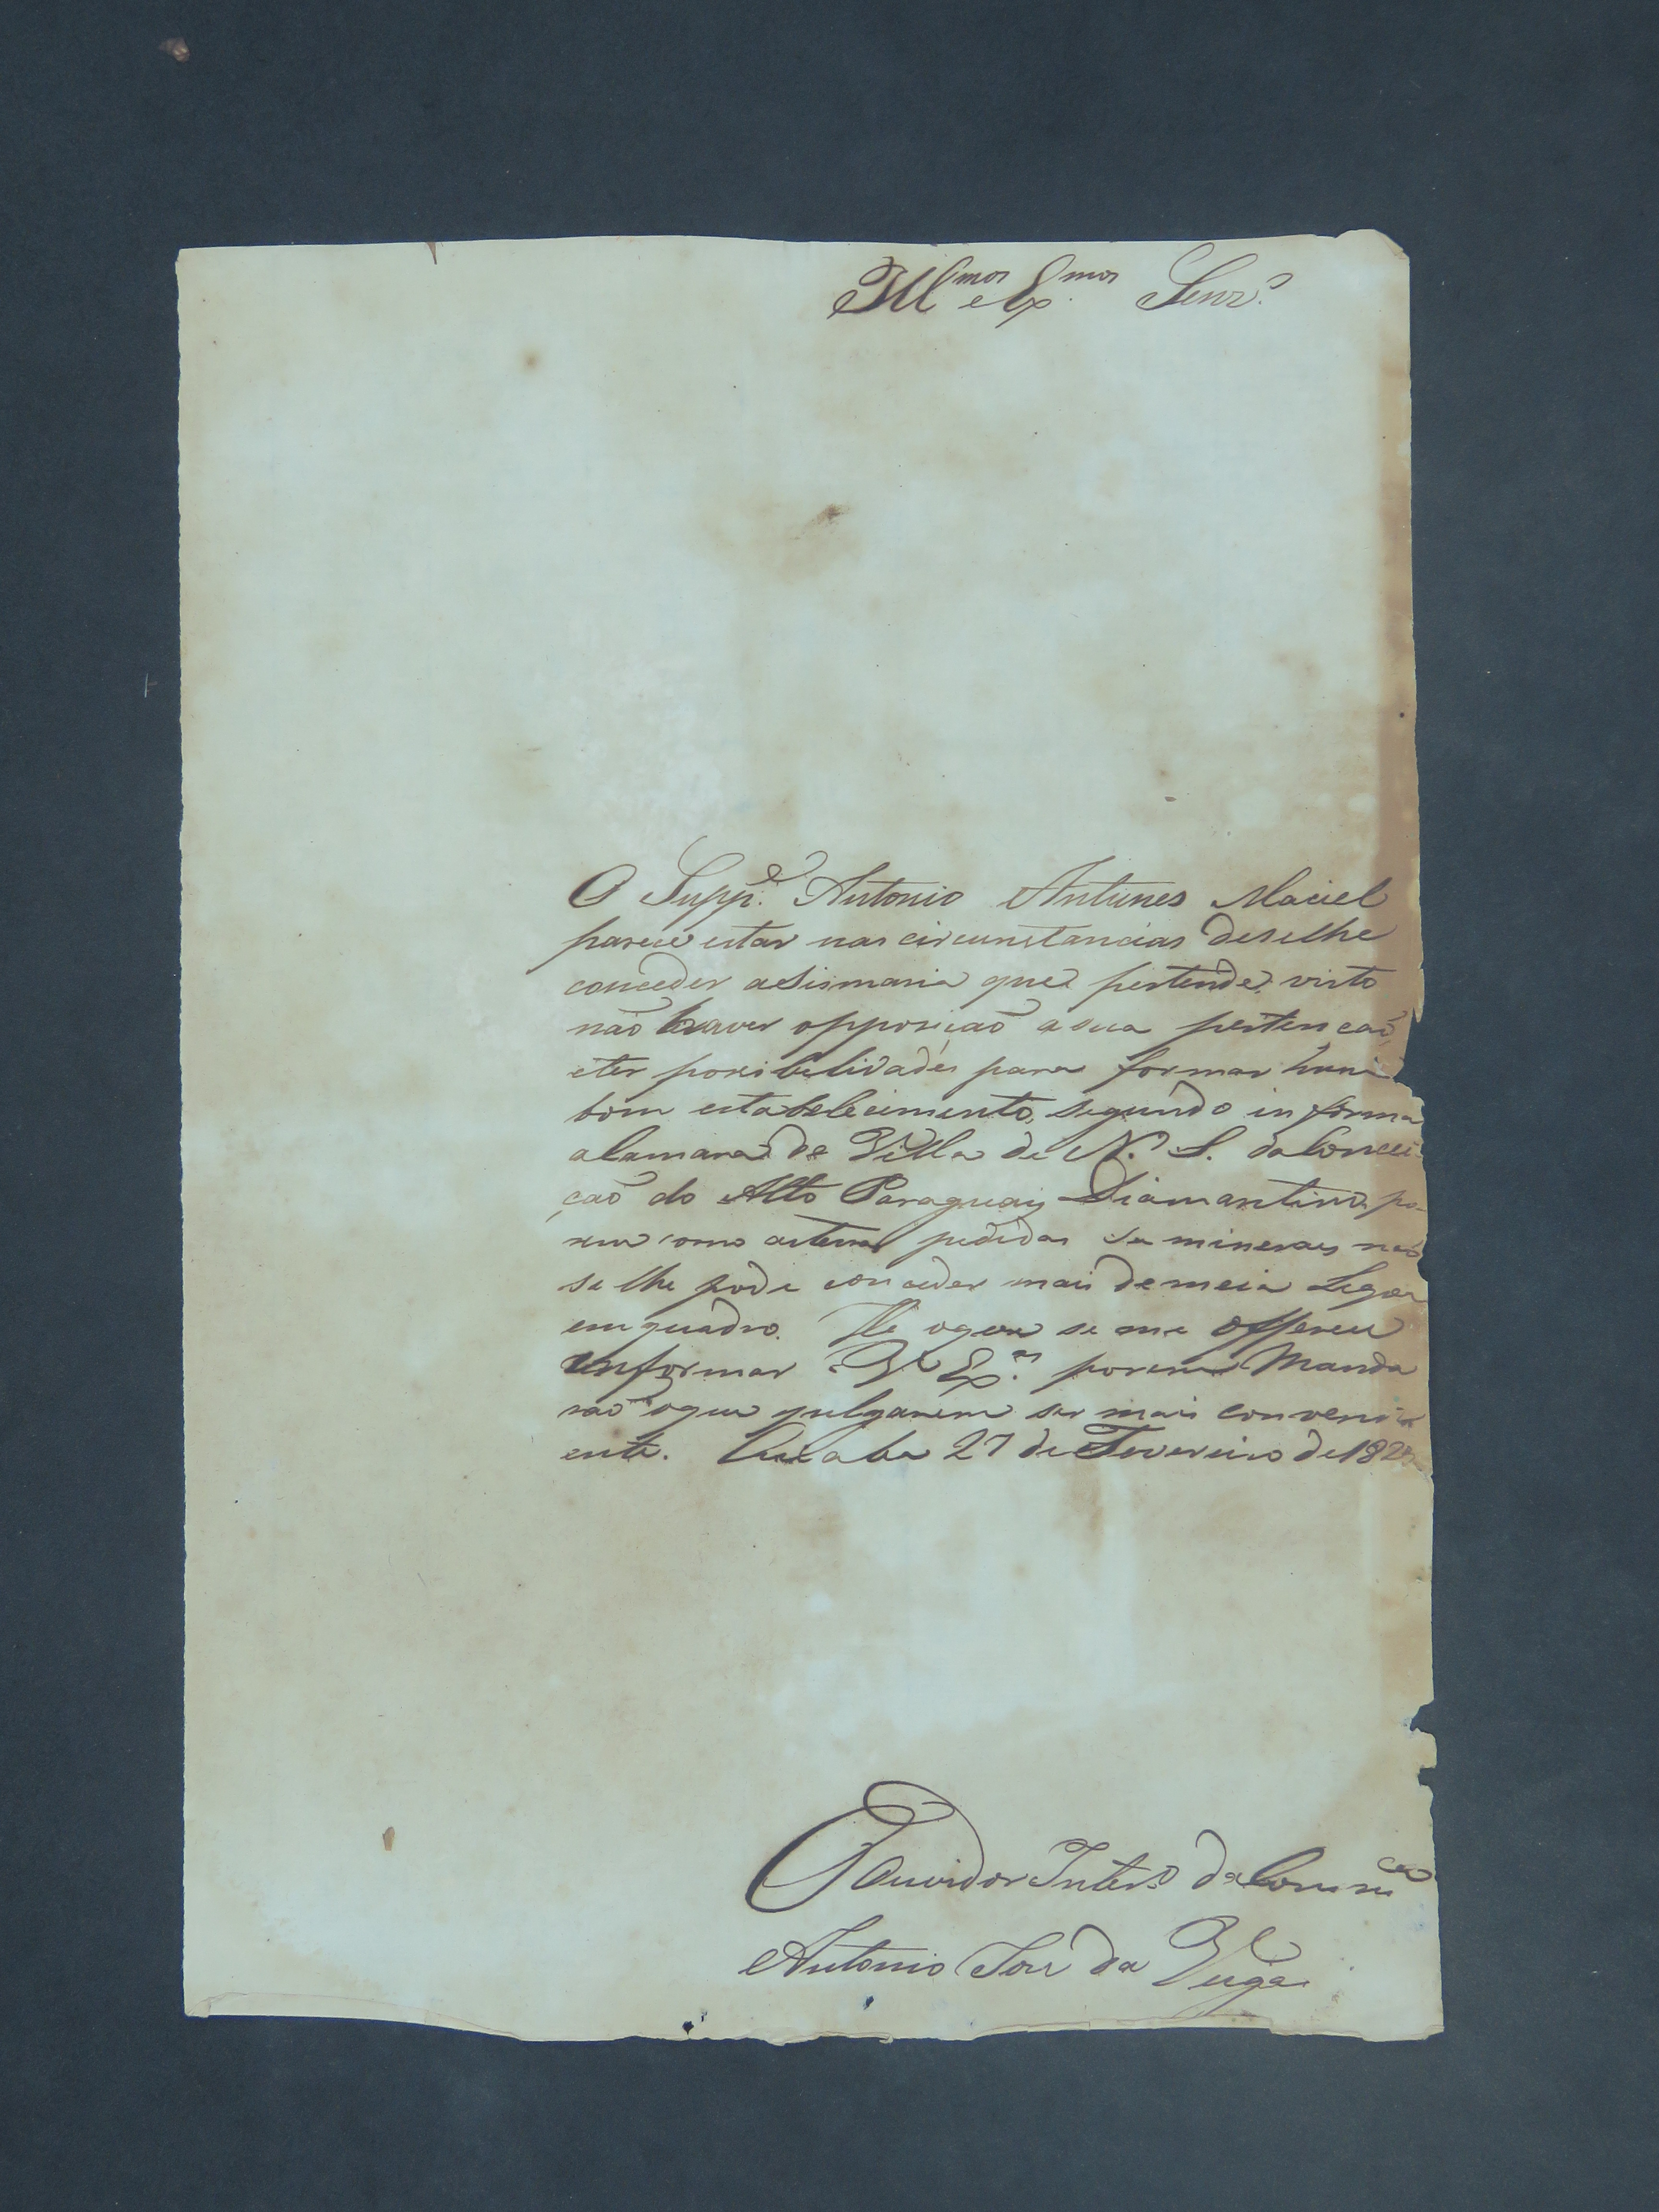 Ill.mos e Ex.mos Senr.s
O Supp.e Antonio Antunes Maciel
parece estar nas circunstancias deselhe
conceder asismaria que pertende, visto
não haver opposição a sua pertenção,
eter posibelidades para formar hum
bom estabelecimento, segundo informa
a Camara da Villa de N. S. da Concei-
ção do Alto Paraguay Diamantino, po-
rem como asterras pedidas sa mineraes não
se lhe pode conceder mais demeia Legoa
em quadro. He oque se me offerece
informar V. Ex.as porem Manda
rão oque julgarem ser mais conveni
ente. Cuiaba 27 de Fevereiro de 182
O Ouvidor Inter.o da Com.ca
Antonio Joze da Veiga